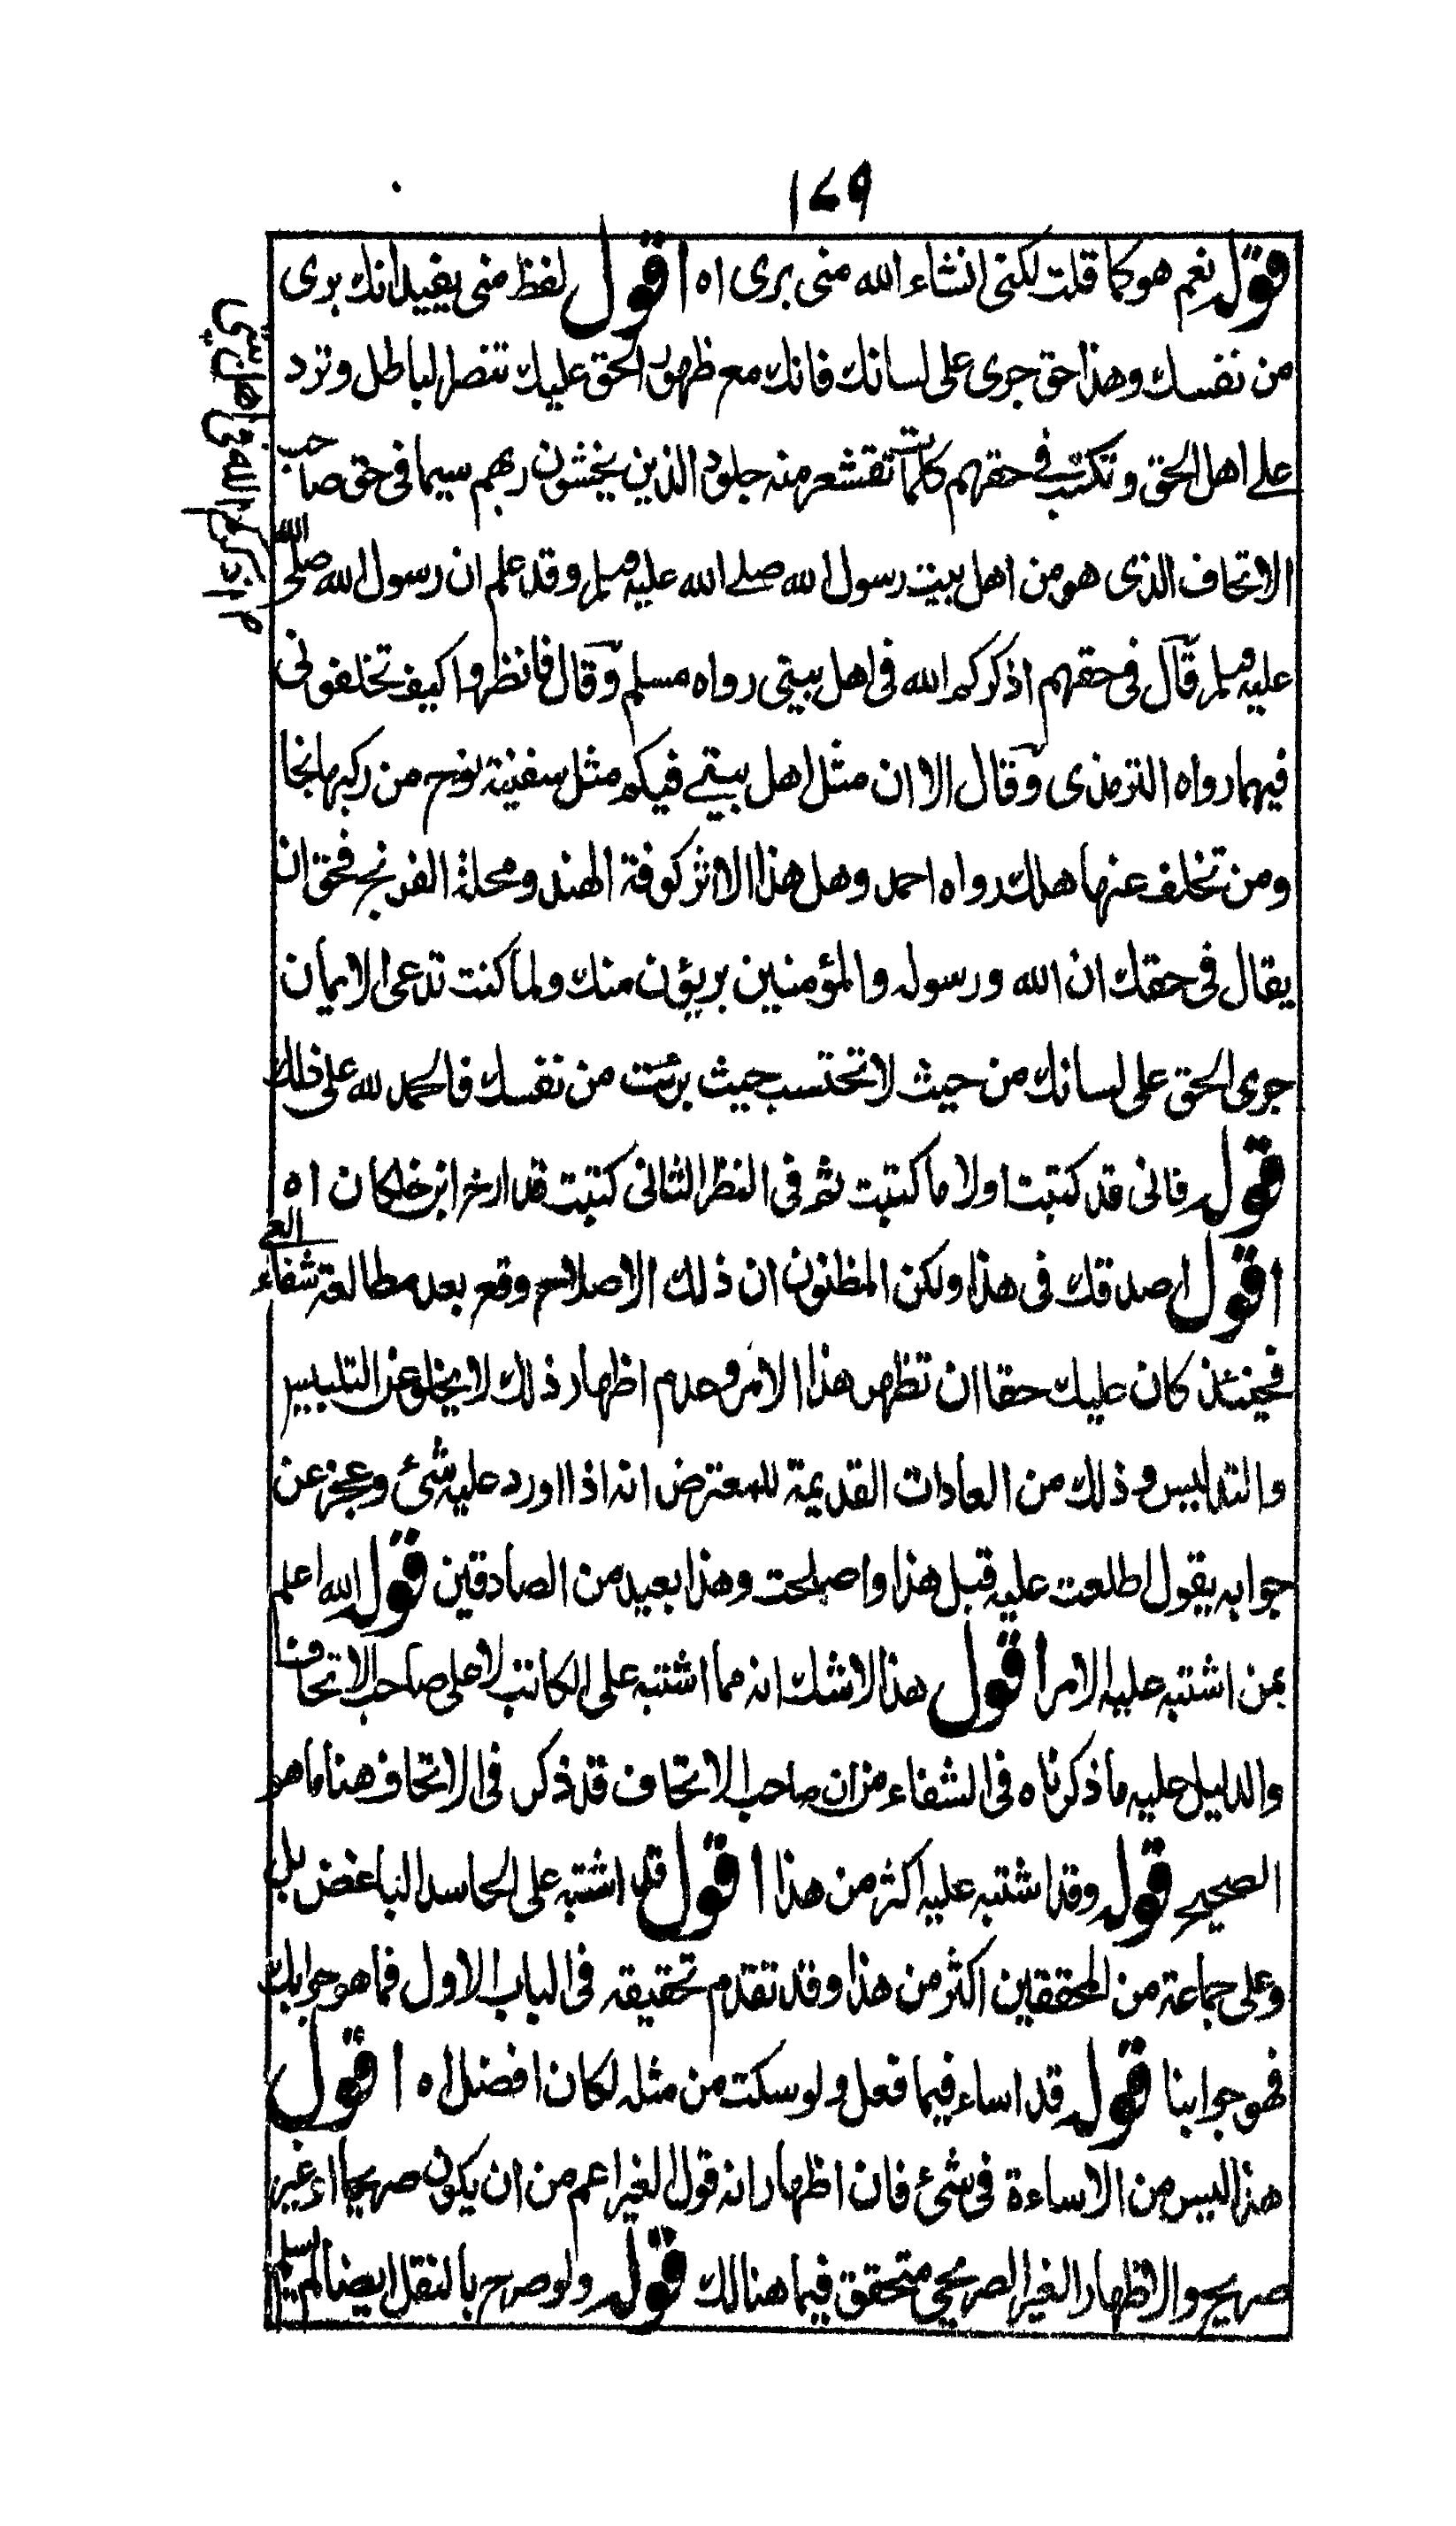 ١٧٩
قوله نعم هو كما قلت لكنى انشاء الله منى برى اه اقول لفظ منى يفيد انك برى
من نفسك وهذا حق جرى على لسانك فانك مع ظهور الحق عليك تنصر الباطل وترد
على اهل الحق وتكتب فى حقهم كلمات تقشعر منه جلود الذين يخشون ربهم سيما فى حق صاحب
الاتحاف الذى هو من اهل بيت رسول الله صلى الله عليه وسلم وقد علم ان رسول الله صلى الله
عليه وسلم قال فى حقهم اذكركم الله فى اهل بيتى رواه مسلم وقال فانظروا كيف تخلفونى
فيهما رواه الترمذى وقال الا ان مثل اهل بيتى فيكم مثل سفينة نوح من ركبها نجا
ومن تخلف عنها هلك رواه احمد وهل هذا الا اثر كوفة الهند ومحلة الفرنج فحق ان
يقال فى حقك ان الله ورسوله والمؤمنين بريؤن منك ولما كنت تدعى الايمان
جرى الحق على لسانك من حيث لا تحتسب حيث برئت من نفسك فالحمد لله على ذلك
قوله فانى قد كتبت اولا ما كتبت ثم فى النظر الثانى كتبت قد ارخ ابن خلكان اه
اقول اصدقك فى هذا ولكن المظنون ان ذلك الاصلاح وقع بعد مطالعة شفاء العى
فحينئذ كان عليك حقا ان تظهر هذا الامر وعدم اظهار ذلك لا يخلو عن التلبيس
والتدليس وذلك من العادات القديمة للمعترض انه اذا اورد عليه شئ وعجز عن
جوابه يقول اطلعت عليه قبل هذا واصلحت وهذا بعيد من الصادقين قوله الله اعلم
بمن اشتبه عليه الامر اقول هذا لا شك انه مما اشتبه على الكاتب لا على صاحب الاتحاف
والدليل عليه ما ذكرناه فى الشفاء من ان صاحب الاتحاف قد ذكر فى الاتحاف هنا ما هو
الصحيح قوله وقد اشتبه عليه اكثر من هذا اقول قد اشتبه على الحاسد الباغض بل
وعلى جماعة من المحققين اكثر من هذا وقد تقدم تحقيقه فى الباب الاول فما هو جوابك
فهو جوابنا قوله قد اساء فيما فعل ولو سكت من مثله لكان افضل اه اقول
هذا ليس من الاساءة فى شئ فان اظهار انه قول الغير اعم من ان يكون صريحا او غير
صريح والاظهار الغير الصريحى متحقق فيما هنالك قوله ولو صرح بالنقل ايضا لم يسلم
اذكركم الله فى اهل بيتى